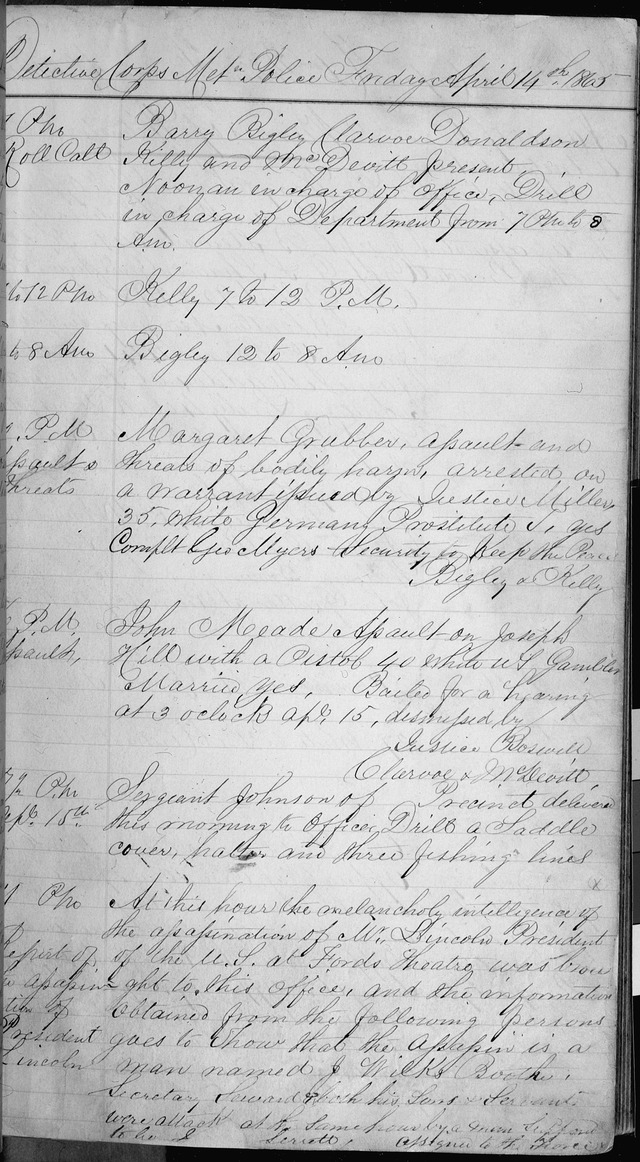 Detective Corps Metn Police Friday April 14th 1865
7 PM Barry Bigley Clarvoe Donaldson
Roll Call Kelly and McDevitt present,
Noonan in charge of Office, Drill
in charge of Department from 7 PM to 8
Am.
to 12 PM Kelly 7 to 12 P.M.
to 8 AM Bigley 12 to 8 AM
P.M Margaret Grubber, assault and
assault & threats of bodily harm, arrested on
threats a warrant issued by Justice Miller
35, white Germany Prostitute S, yes
Complt Geo Myers Security to Keep the Peace
Bigley & Kelly
P.M. John Meade Assault on Joseph
assault, Hill with a Pistol 40 white US Gambler
Married yes, Bailed for a hearing
at 3 oclock Apr 15, dismissed by
Justice Boswell
Clarvoe & McDevitt
PM Sergeant Johnson of Precinct delivered
15th this morning to Officer Drill a Saddle
cover, halter and three fishing lines
x
PM At this hour the melancholy intelligence of
the assasination of Mr. Lincoln President
Report of of the U.S. at Fords Theatre was brou
assasin- ght to this office, and the information
tion of obtained from the following persons
President goes to show that the assassin is a
Lincoln man named J. Wilks Booth.
Secretary Seward & both his Sons & Servant
were attack at the same hour by a man supposed
to be